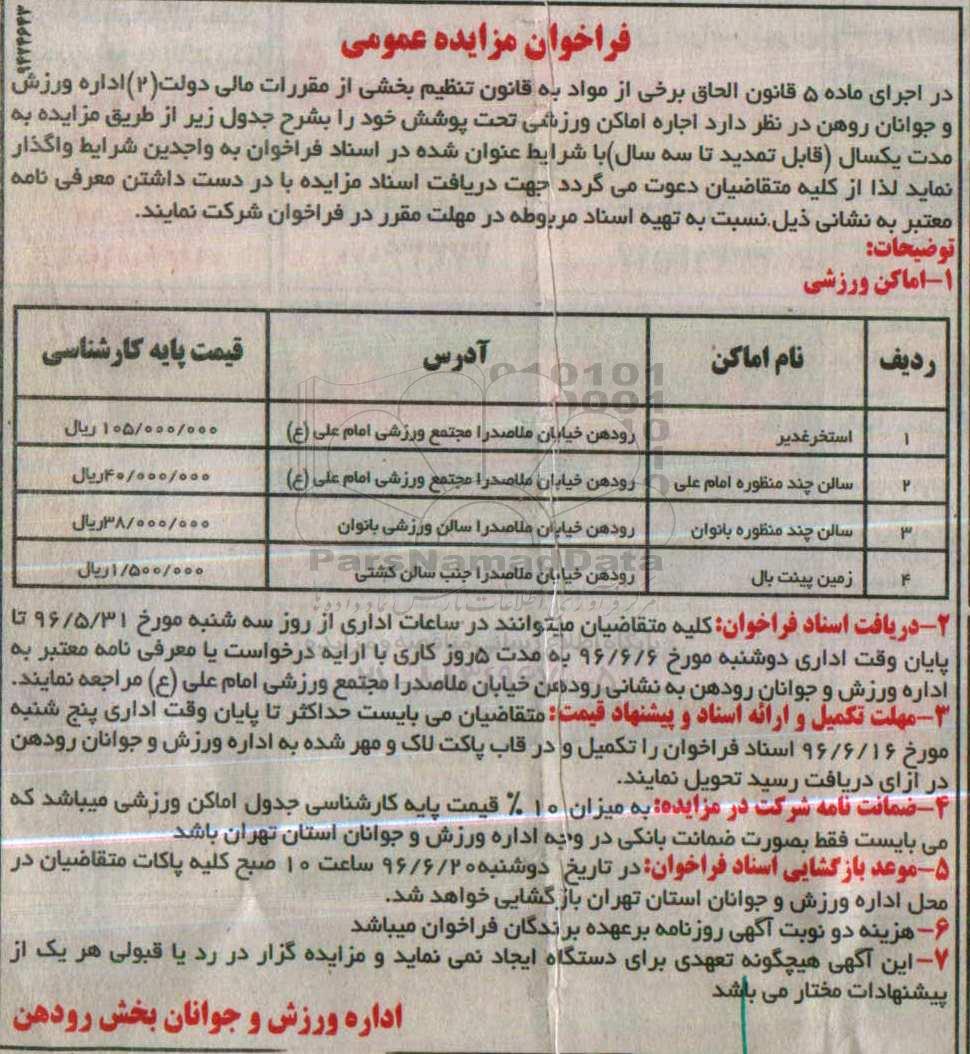 ۹۴۲۴۶۴۳
فراخوان مزایده عمومی
در اجرای ماده ۵ قانون الحاق برخی از مواد به قانون تنظیم بخشی از مقررات مالی دولت(۲)اداره ورزش
و جوانان روهن در نظر دارد اجاره اماکن ورزشی تحت پوشش خود را بشرح جدول زیر از طریق مزایده به
مدت یکسال (قابل تمدید تا سه سال)با شرایط عنوان شده در اسناد فراخوان به واجدین شرایط واگذار
نماید لذا از کلیه متقاضیان دعوت می گردد جهت دریافت اسناد مزایده با در دست داشتن معرفی نامه
معتبر به نشانی ذیل.نسبت به تهیه اسناد مربوطه در مهلت مقرر در فراخوان شرکت نمایند.
توضیحات:
۱-اماکن ورزشی
ردیف نام اماکن آدرس قیمت پایه کارشناسی
۱ استخرغدیر رودهن خیابان ملاصدرا مجتمع ورزشی امام علی (ع) ۱۰۵/۰۰۰/۰۰۰ ریال
۲ سالن چند منظوره امام علی رودهن خیابان ملاصدرا مجتمع ورزشی امام علی (ع) ۴۰/۰۰۰/۰۰۰ریال
۳ سالن چند منظوره بانوان رودهن خیابان ملاصدرا سالن ورزشی بانوان ۳۸/۰۰۰/۰۰۰ریال
۴ زمین پینت بال رودهن خیابان ملاصدرا جنب سالن کشتی ۱/۵۰۰/۰۰۰ریال
ParsNamadData
۲-دریافت اسناد فراخوان:کلیه متقاضیان میتوانند در ساعات اداری از روز سه شنبه مورخ ۹۶/۵/۳۱ تا
پایان وقت اداری دوشنبه مورخ ۹۶/۶/۶ به مدت ۵روز کاری با ارایه درخواست یا معرفی نامه معتبر به
اداره ورزش و جوانان رودهن به نشانی رودهن خیابان ملاصدرا مجتمع ورزشی امام علی (ع) مراجعه نمایند.
۳-مهلت تکمیل و ارائه اسناد و پیشنهاد قیمت:متقاضیان می بایست حداکثر تا پایان وقت اداری پنج شنبه
مورخ ۹۶/۶/۱۶ اسناد فراخوان را تکمیل و در قاب پاکت لاک و مهر شده به اداره ورزش و جوانان رودهن
در ازای دریافت رسید تحویل نمایند.
۴-ضمانت نامه شرکت در مزایده:به میزان ۱۰ % قیمت پایه کارشناسی جدول اماکن ورزشی میباشد که
می بایست فقط بصورت ضمانت بانکی در وجه اداره ورزش و جوانان استان تهران باشد
۵-موعد بازگشایی اسناد فراخوان:در تاریخ دوشنبه۹۶/۶/۲۰ ساعت ۱۰ صبح کلیه پاکات متقاضیان در
محل اداره ورزش و جوانان استان تهران بازگشایی خواهد شد.
۶-هزینه دو نوبت آگهی روزنامه برعهده برندگان فراخوان میباشد
۷-این آگهی هیچگونه تعهدی برای دستگاه ایجاد نمی نماید و مزایده گزار در رد یا قبولی هر یک از
پیشنهادات مختار می باشد
اداره ورزش و جوانان بخش رودهن